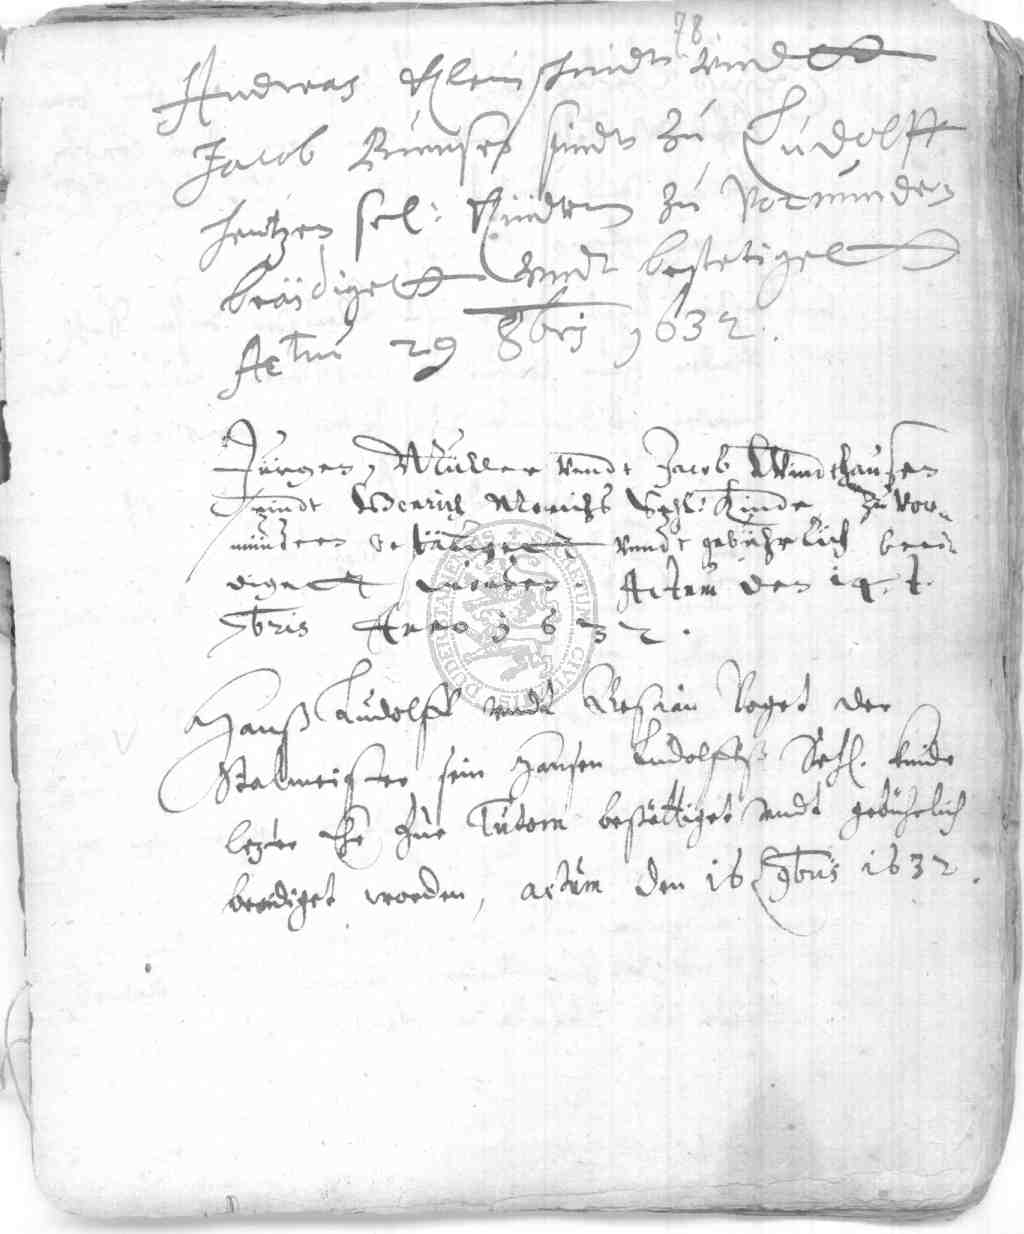 78
Andreas Kleinschmidt undtt
Jacob sindt zu Ludolff
Hentzen sel: Kindern zu Vormunden
beäidigett undt bestetigett
Actum 29 8bris 1632.
Jürgen Müller vnndt Jacob Windthausen
sindt Henrich Sehl: Kinder zu Vor-
mündern bestätiget vnndt gebührlich beei-
digett worden. Actum den 14. t.
9bris Anno 1632.
Hanß Ludolff undt Voget der
Stalmeister sein Hansen Ludolffs Sehl. Kinder
letzter Ehe zue Tutorn bestättiget undt gebührlich
beeidiget worden, actum den 16 9bris 1632.